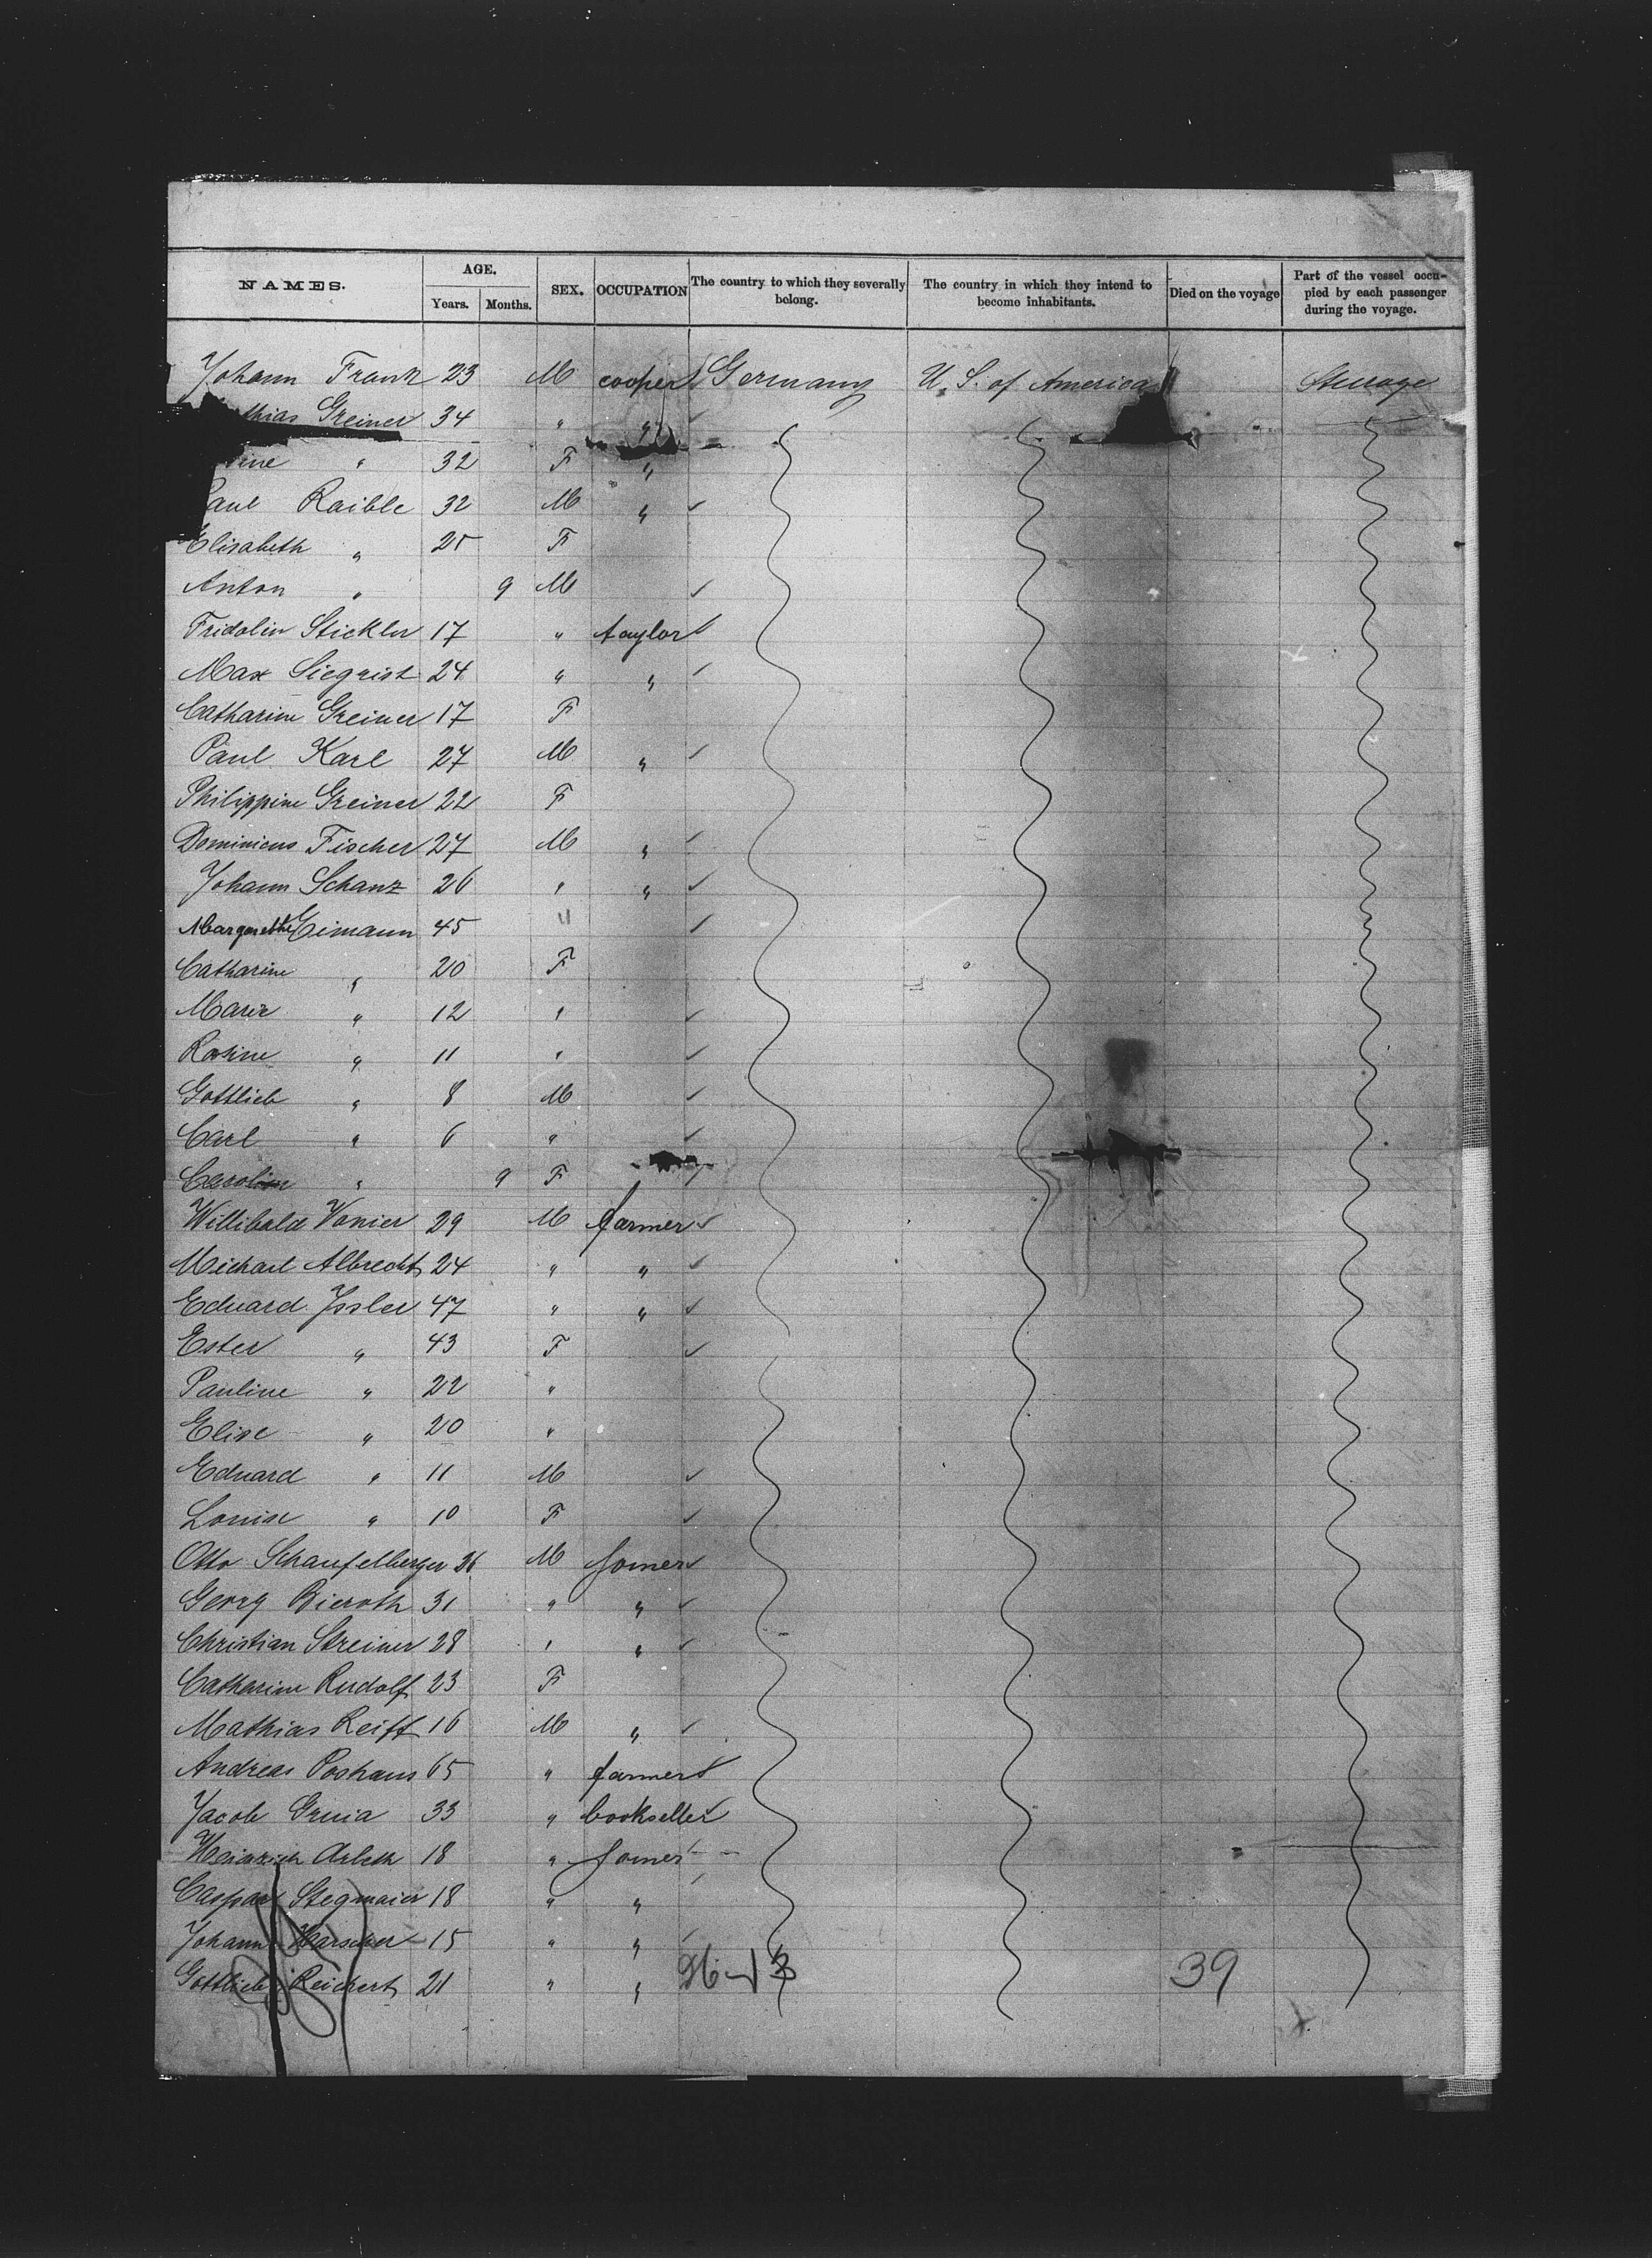 NAMES. AGE. Years. Months. SEX. OCCUPATION The country to which they severally belong. The country in which they intend to become inhabitants. Died on the voyage Part of the vessel occupied by each passenger during the voyage.
Johann Frank 23 M cooper Germany U. S. of America Steerage
thias Greiner 34 " "
ine " 32 F "
Paul Raible 32 M "
Elisabeth " 25 F
Anton " 9 M
Fridolin Stickler 17 " taylor
Max Siegrist 24 " "
Catharine Greiner 17 F
Paul Karl 27 M "
Philippine Greiner 22 F
Dominicus Fischer 27 M "
Johann Schanz 26 " "
Margarethe Eimann 45 "
Catharine " 20 F
Marie " 12 "
Rosine " 11 "
Gottlieb " 8 M
Carl " 6 "
Carolin " 9 F
Willibald Vonier 29 M farmer
Michael Albrecht 24 " "
Eduard Issler 47 " "
Ester " 43 F
Pauline " 22 "
Elise " 20 "
Eduard " 11 M
Louise " 10 F
Otto Schaufelberger 26 M Joiner
Georg Bieroth 31 " "
Christian Streiner 28 " "
Catharine Rudolf 23 F
Mathias Reiff 16 M "
Andreas Poshaus 65 " farmer
Jacob Gruia 33 " bookseller
Heinrich Arleth 18 " Joiner
Caspar Stegmaier 18 " "
Johann Harscher 15 " "
Gottlieb Reichert 21 " " 39